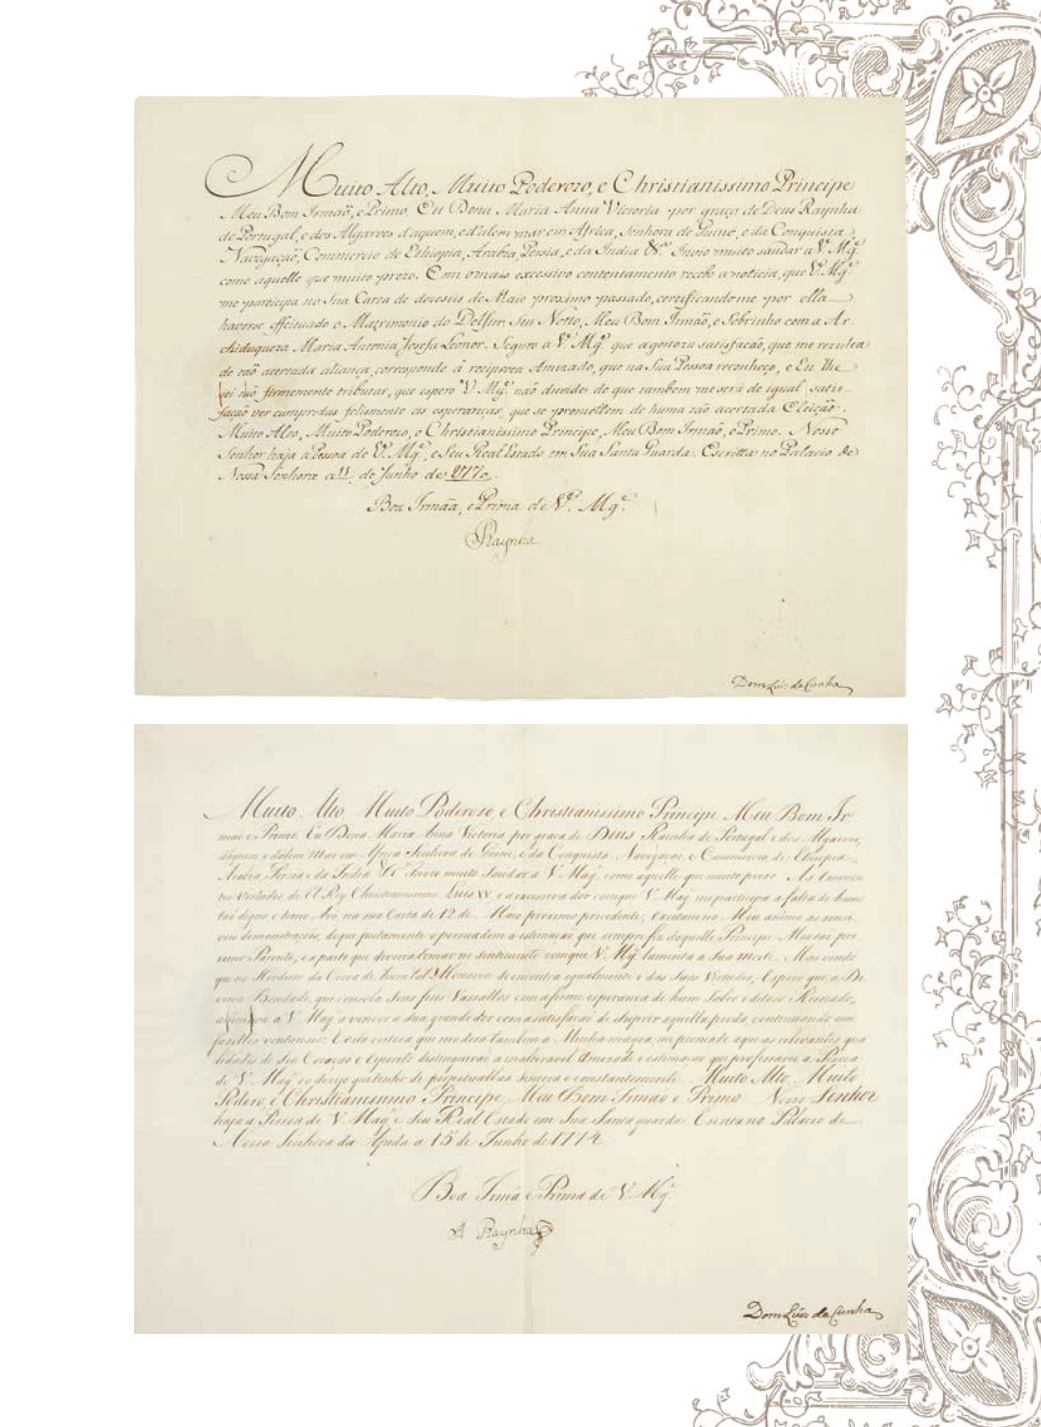 Muito Alto, Muito Poderozo, e Christianissimo Principe
Meu Bom Irmaõ, e Primo. Eu Dona Maria Anna Victoria por graça de Deus Raynha
de Portugal, e dos Algarves d'aquem, e d'alem mar em Africa, Senhora de Guiné, e da Conquista
Navegação, Commercio de Ethiopia, Arabia, Persia, e da India &ª. Invio muito saudar a Vª. Mgᵉ.
como aquelle que muito prezo. Com o mais excessivo contentamento recebo a noticia, que Vª. Mgᵉ.
me participa na Sua Carta de dezeseis de Maio proximo passado, certificandome por ella
haverse effeituado o Matrimonio do Delfin Seu Netto, Meu Bom Irmão, e Sobrinho com a Ar
chiduqueza Maria Antonia Josefa Leonor. Seguro a Vª. Mgᵉ. que a gostoza satisfacão, que me rezulta
de taõ acertada aliança, corresponde á reciproca Amizade, que na Sua Pessoa reconheço, e Eu lhe
sei taõ firmemente tributar, que espero Vª. Mgᵉ. não duvide de que tambem me será de igual satis-
fação ver cumpridas felismente as esperanças, que se promettem de huma tão acertada Eleição.
Muito Alto, Muito Poderozo, e Christianissimo Principe, Meu Bom Irmão, e Primo. Nosso
Senhor haja a Pessoa de Vª. Mgᵉ., e Seu Real Estado em Sua Santa Guarda. Escritta no Palacio de
Nossa Senhora a 11 de Junho de 1770.
Boa Irmãa, e Prima de Vª. Mgᵉ.
Raynha
Dom Luis da Cunha
Muito Alto, Muito Poderozo, e Christianissimo Principe Meu Bom Ir
mão e Primo. Eu Dona Maria Anna Victoria por graça de Deus Rainha de Portugal e dos Algarves,
daquem e dalem Mar em Africa Senhora de Guiné, e da Conquista, Navegação, e Commercio de Ethiopia
Arabia, Persia e da India &ª Invio muito Saudar a V. Magᵉ como aquelle que muito prezo. As Eminen
tes Virtudes de El Rey Christianissimo Luis XV. e a excessiva dor com que V. Magᵉ me participa a falta de hum
taõ digno e terno Avô, na sua Carta de 12 de Maio proximo precedente, excitam no Meu animo as sensi
veis demonstrações, de que justamente
Parente, e a parte que devia tomar no sentimento com que V. Mgᵉ lamenta a sua morte. Mas vendo
que no Herdeiro da Coroa de hum tal Monarca se encontra igualmente o das Suas Virtudes, Espero que a Di
vina Bondade, que consola Seus fieis Vassallos com a firme esperança de hum Sabio e ditoso Reinado,
a V. Magᵉ a vencer a sua grande dor com a satisfação de aquella perda, continuando em
Minha magoa, me promete que as relevantes qua
lidades de Seu Coração e Espirito distinguirão a inalteravel Amizade e estimação que professarei a Pessoa
de V. Magᵉ e o dezejo que tenho de sincera e constantemente. Muito Alto, Muito
Podero, e Christianissimo Principe, Meu Bom Irmão e Primo Nosso Senhor
haja a Pessoa de V. Magᵉ e Seu Real Estado em Sua Santa guarda. Escrita no Palacio de
Nossa Senhora da Ajuda a 15 de Junho de 1774.
Boa Irmã e Prima de V. Mgᵉ
A Raynha
Dom Luis da Cunha